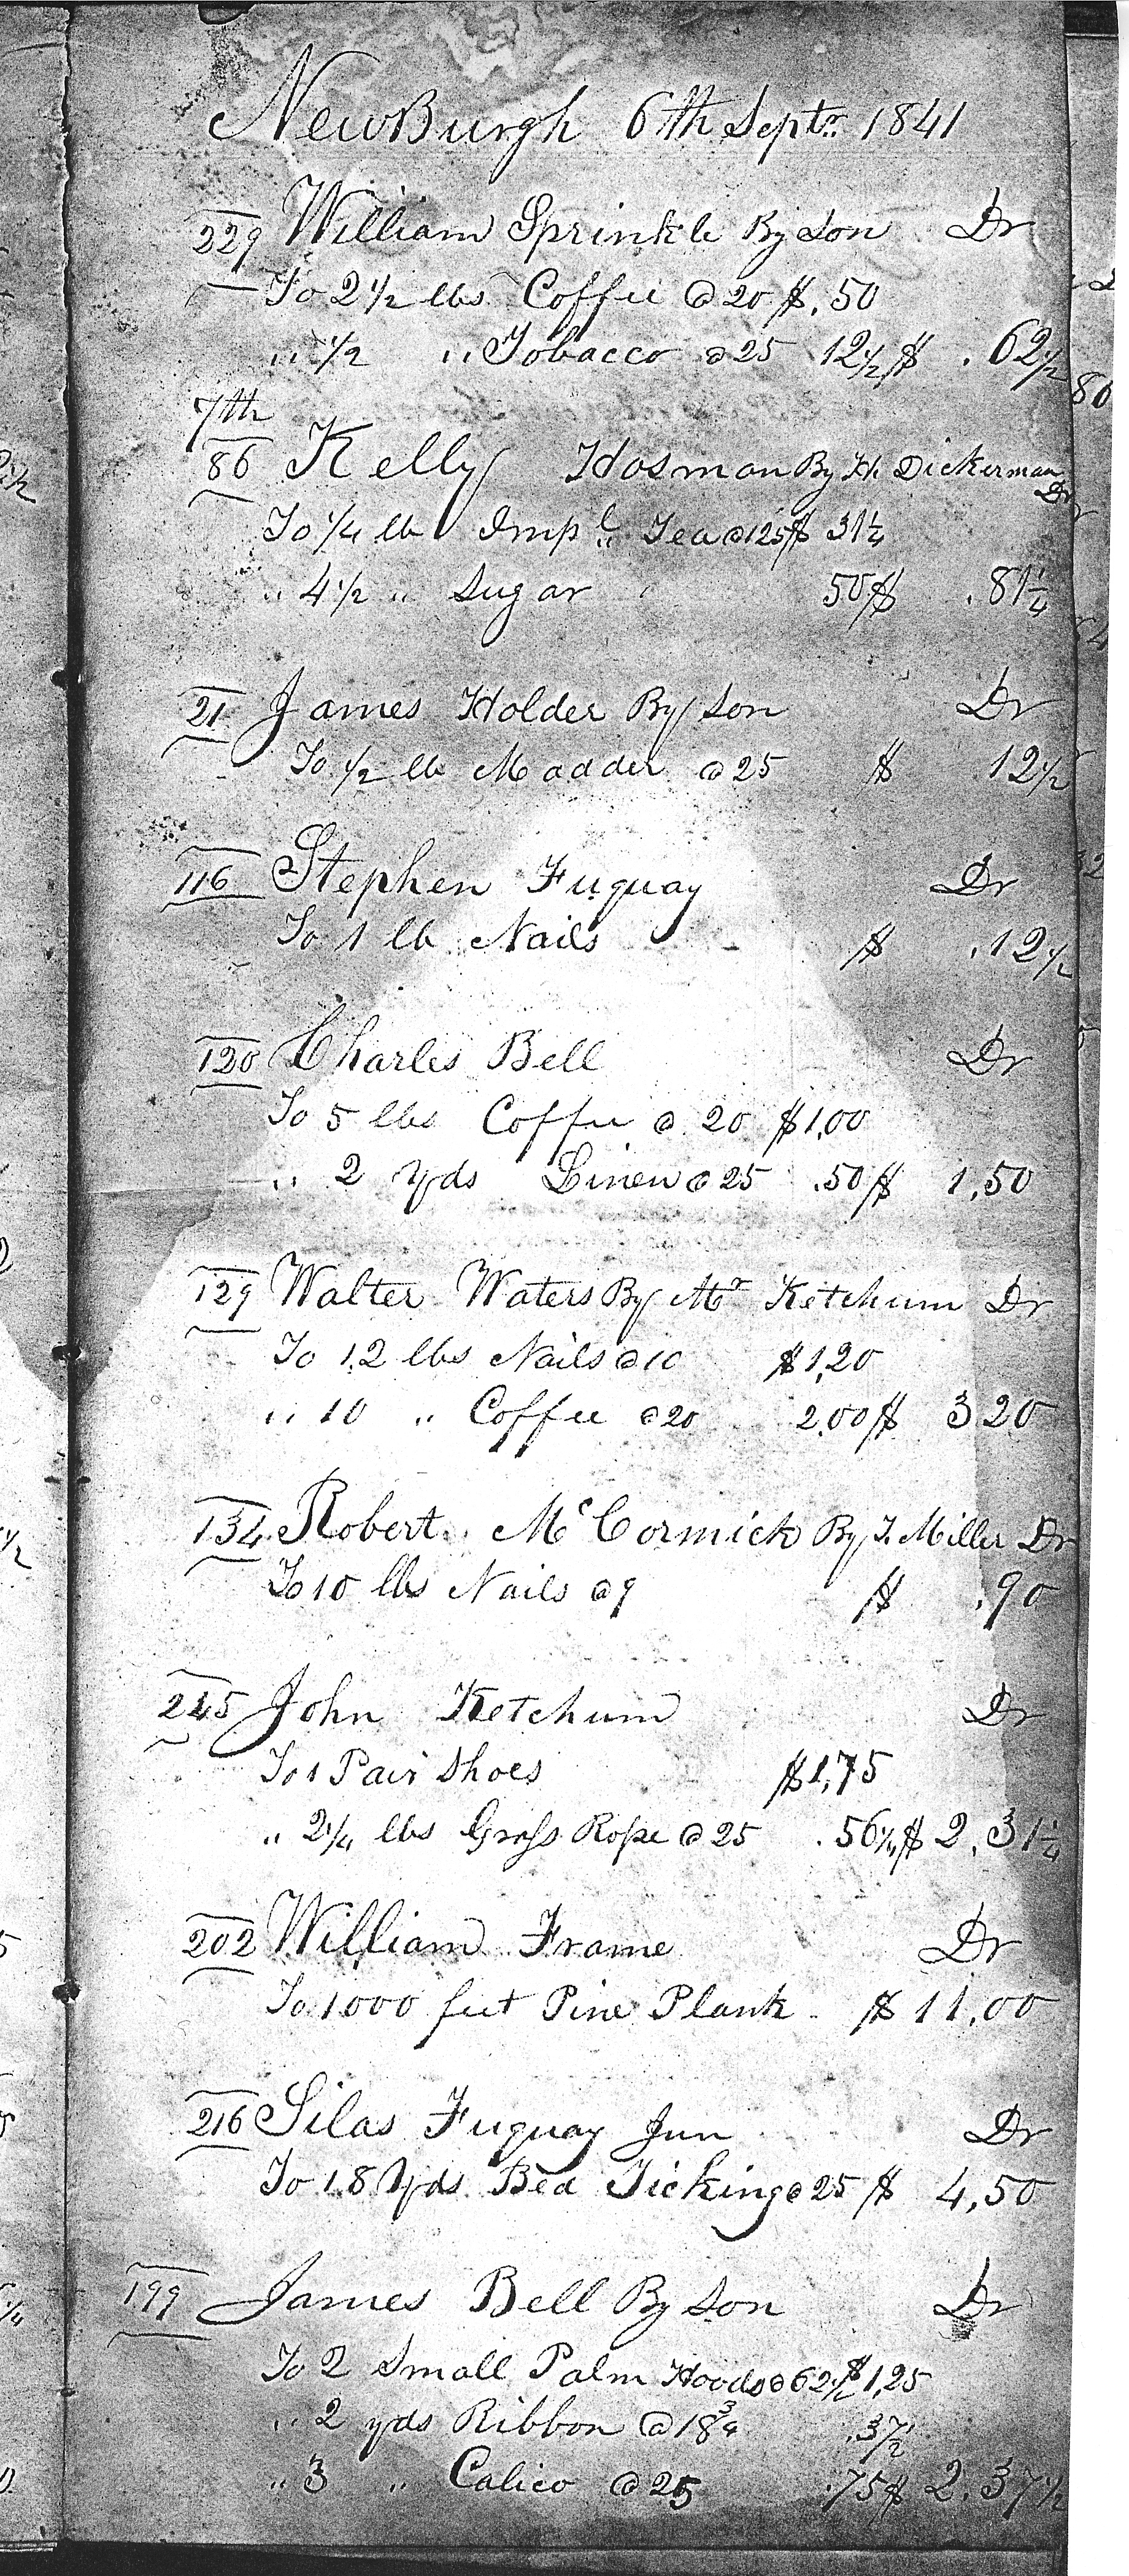 NewBurgh 6th Septr. 1841
229 William Sprinkle By Son Dr
To 2 1/2 lbs Coffee @ 20 $.50
" 1/2 " Tobacco @ 25 12 1/2 $ .62 1/2
7th
86 Kelly Hosman By H. Dickerman Dr
To 1/4 lb Impl. Tea @ 125 $ 31 1/4
" 4 1/2 " Sugar 50 $ .81 1/4
21 James Holder By Son Dr
To 1/2 lb Madder @ 25 $ 12 1/2
116 Stephen Fuquay Dr
To 1 lb Nails $ .12 1/2
120 Charles Bell Dr
To 5 lbs Coffee @ 20 $1.00
" 2 yds Linen @ 25 .50 $ 1.50
129 Walter Waters By Mr Ketchum Dr
To 12 lbs Nails @ 10 $1.20
" 10 " Coffee @ 20 2.00 $ 3 20
134 Robert McCormick By J. Miller Dr
To 10 lbs Nails @ 9 $ .90
245 John Ketchum Dr
To 1 Pair Shoes $1.75
" 2 1/4 lbs Grass Rope @ 25 .56 1/4 $ 2.31 1/4
202 William Frame Dr
To 1000 feet Pine Plank $ 11.00
216 Silas Fuquay Jun Dr
To 18 Yds Bed Ticking @ 25 $ 4.50
199 James Bell By Son Dr
To 2 Small Palm Hoods @ 62 1/2 $1.25
" 2 yds Ribbon @ 18 3/4 .37 1/2
" 3 " Calico @ 25 .75 $ 2.37 1/2